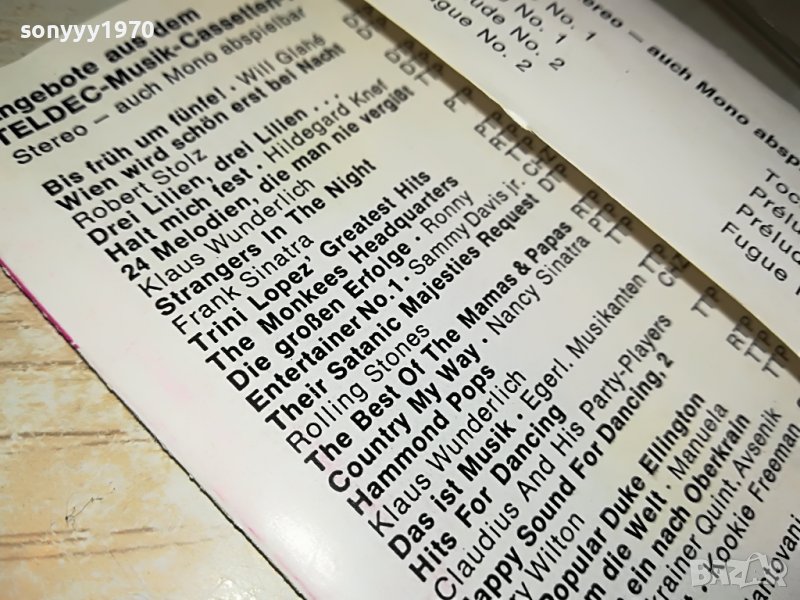 sonyyy1970
ngebote aus dem
TELDEC-Musik-Cassetten-
Stereo – auch Mono abspielbar
Bis früh um fünfe! · Will Glahé
Wien wird schön erst bei Nacht
Robert Stolz
Drei Lilien, drei Lilien . . .
Halt mich fest · Hildegard Knef
24 Melodien, die man nie vergißt
Klaus Wunderlich
Strangers In The Night
Frank Sinatra
Trini Lopez' Greatest Hits
The Monkees Headquarters
Die großen Erfolge · Ronny
Entertainer No. 1 · Sammy Davis jr.
Their Satanic Majesties Request
Rolling Stones
The Best Of The Mamas & Papas
Country My Way · Nancy Sinatra
Hammond Pops
Klaus Wunderlich
Das ist Musik · Egerl. Musikanten
Hits For Dancing
Claudius And His Party-Players
Happy Sound For Dancing, 2
ry Wilton
Popular Duke Ellington
m die Welt · Manuela
ein nach Oberkrain
krainer Quint. Avsenik
Kookie Freeman
antovani
No. 1
No. 1
ude No. 2
gue No. 2
Stereo – auch Mono abspie
Toc
Prélu
Prélud
Fugue
BAZAR